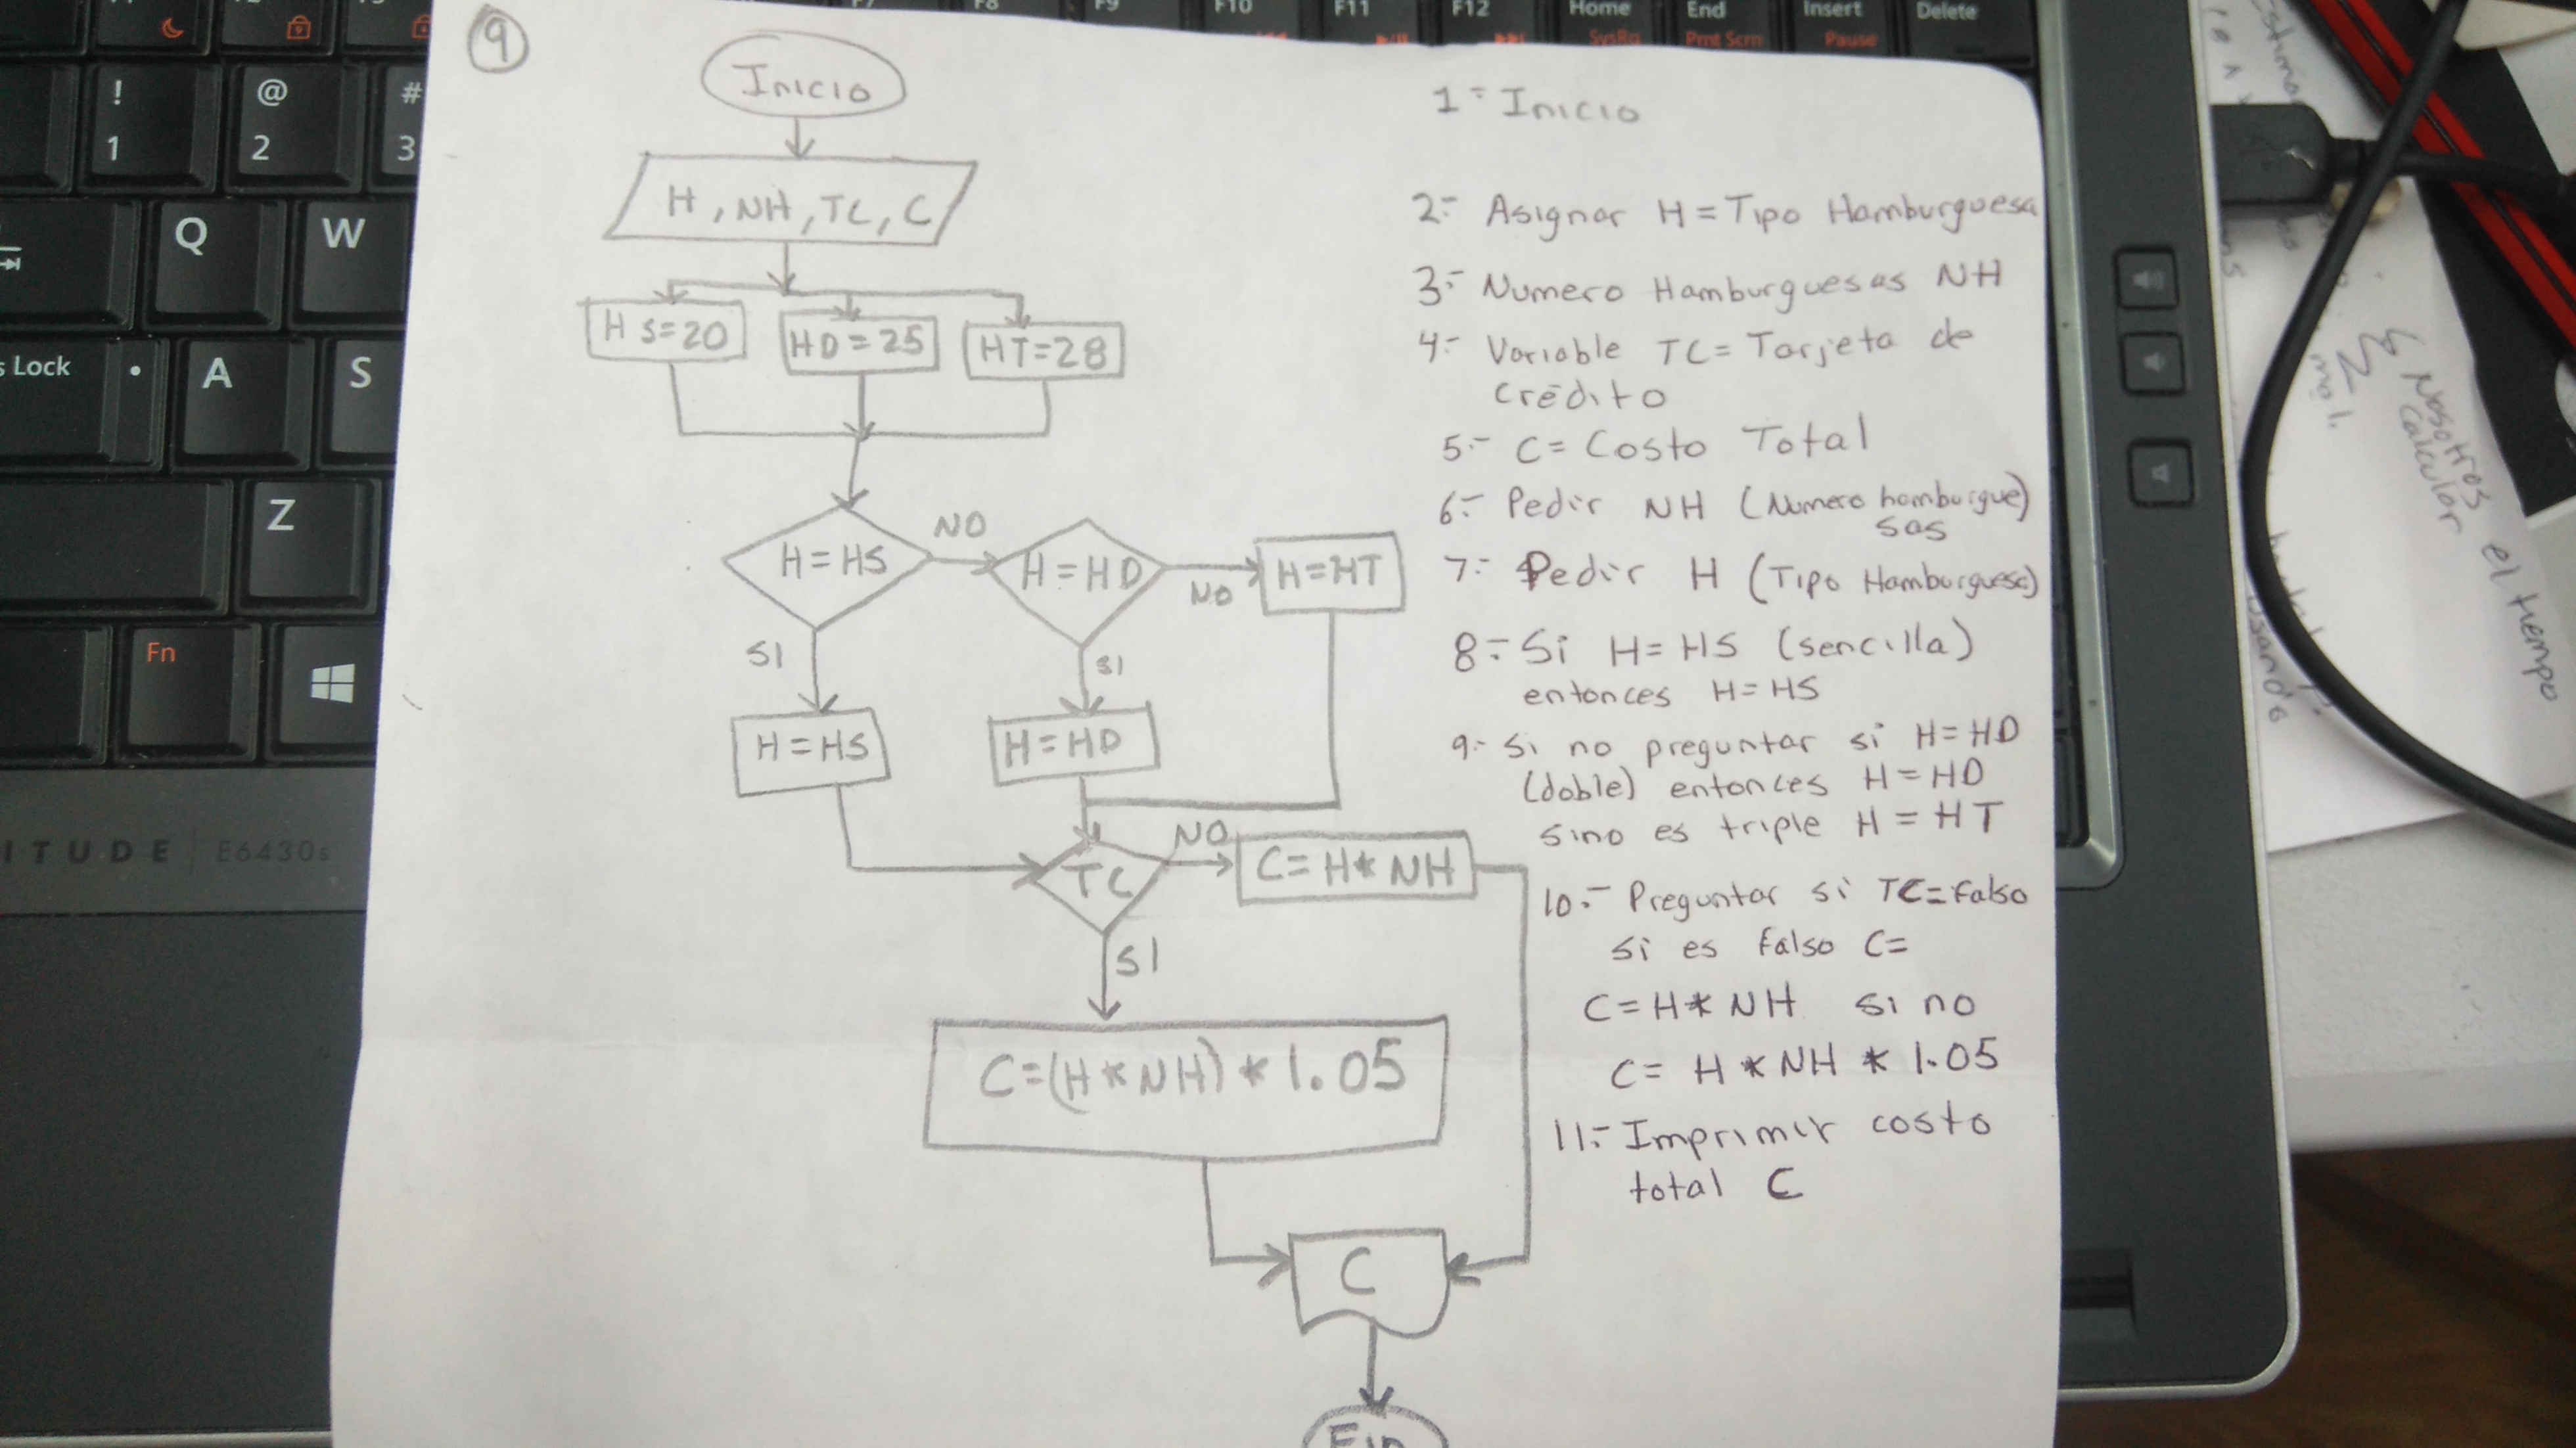 9
Inicio
H, NH, TC, C
HS=20
HD=25
HT=28
H=HS
NO
H=HD
NO
H=HT
SI
SI
H=HS
H=HD
TC
NO
C=H*NH
SI
C=(H*NH)*1.05
C
1- Inicio
2- Asignar H=Tipo Hamburguesa
3- Numero Hamburguesas NH
4- Variable TC= Tarjeta de
Crédito
5- C= Costo Total
6- Pedir NH (Numero hamburgue)
sas
7- Pedir H (Tipo Hamburguesa)
8- Si H=HS (sencilla)
entonces H=HS
9- Si no preguntar si H=HD
(doble) entonces H=HD
sino es triple H=HT
10- Preguntar si TC=Falso
Si es Falso C=
C=H*NH si no
C= H*NH*1.05
11- Imprimir costo
total C
Nosotros el tiempo
Calcular
Delete
Insert
Pause
End
Prnt Scrn
Home
SysRq
F12
F11
F10
F9
F8
# 3
@ 2
! 1
W
Q
S
A
Lock
Z
Fn
ITUDE E6430s